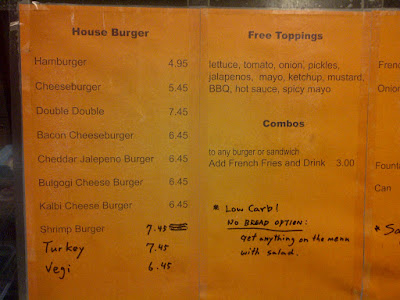 House Burger
Hamburger 4.95
Cheeseburger 5.45
Double Double 7.45
Bacon Cheeseburger 6.45
Cheddar Jalepeno Burger 6.45
Bulgogi Cheese Burger 6.45
Kalbi Cheese Burger 6.45
Shrimp Burger 7.45
Turkey 7.45
Vegi 6.45
Free Toppings
lettuce, tomato, onion, pickles,
jalapenos, mayo, ketchup, mustard,
BBQ, hot sauce, spicy mayo
Combos
to any burger or sandwich
Add French Fries and Drink 3.00
* Low Carb!
NO BREAD OPTION:
get anything on the menu
with salad.
Frenc
Onion
Fount
Can